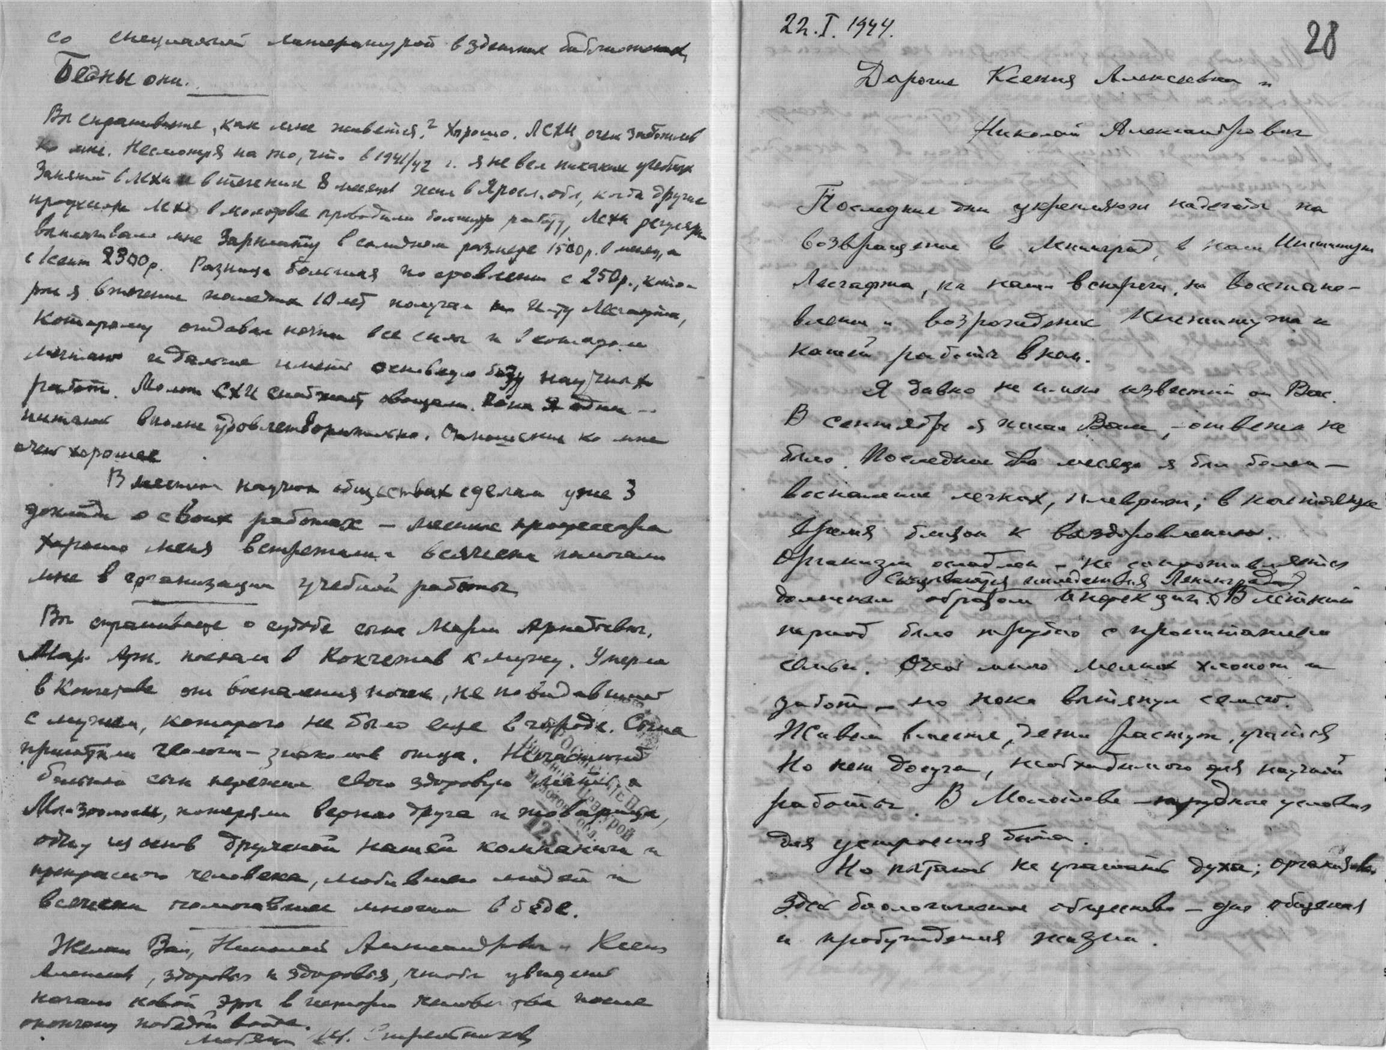 со специальной литературой в здешних библиотеках,
Бедны они.
Вы спрашиваете, как мне живется? Хорошо. ЛСХИ очень заботился
ко мне. Несмотря на то, что в 1941/42 г. я не вел никаких учебных
занятий в ЛСХИ и в течении 8 месяцев жил в Яросл. обл, когда другие
профессора ЛСХИ в Молотове проводили большую работу, ЛСХИ
выплачивал мне зарплату в солидном размере 1500р. в месяц, а
с 1 сент 2300р. Разница большая по сравнению с 250р., кото-
рые я в течение последних 10 лет получал по И-ту Лесгафта,
которому отдавал почти все силы и в котором
мечтаю и дальше иметь основную базу научных
работ. Молот. СХИ снабжает овощами.
питаюсь вполне удовлетворительно. Отношение ко мне
очень хорошее
В местных научных обществах сделал уже 3
доклада о своих работах – местные профессора
хорошо меня встретили и всячески помогали
мне в организации учебной работы
Вы спрашиваете о судьбе сына Марии Арнольдовны.
Мар. Арн. поехала в Кокчетав к мужу. Умерла
в Кокчетаве от воспаления почек, не повидавшись
с мужем, которого не было еще в городе. Сына
приютили геологи – знакомые отца. Несчастный
больной сын пережил свою здоровую мать, а
Мы потеряли верного друга и товарища,
одну из основ дружной нашей компании и
прекрасного человека, любившего людей и
всячески помогавшего многим в беде.
Желаю Вам, Николай Александрович и Ксения
Алексеевна, здоровья и здоровья, чтобы увидеть
начало новой эры в истории человечества после
окончания победой войны.
22.I.1944.
28
Дорогие Ксения Алексеевна и
Николай Александрович
Последние дни укрепляют надежды на
возвращение в Ленинград, в наш Институт
Лесгафта, на наши встречи, на восстано-
вление и возрождение Института и
нашей работы в нем.
Я давно не имею известий от Вас.
В сентябре я писал Вам, – ответа не
было. Последние два месяца я был болен –
воспаление легких, плеврит; в настоящее
время близок к выздоровлению.
Организм ослаблен – не сопротивляется
Сказываются последствия Ленинграда
должным образом инфекции. В летний
период было трудно с пропитанием
семьи. Очень много мелких хлопот и
забот – но пока вытянул семью.
Живем вместе, дети растут, учатся
Но нет досуга, необходимого для научной
работы. В Молотове – трудные условия
для устроения быта.
Но пытаюсь не угашать духа; организовал
здесь биологическое общество – для общения
и пробуждения жизни.